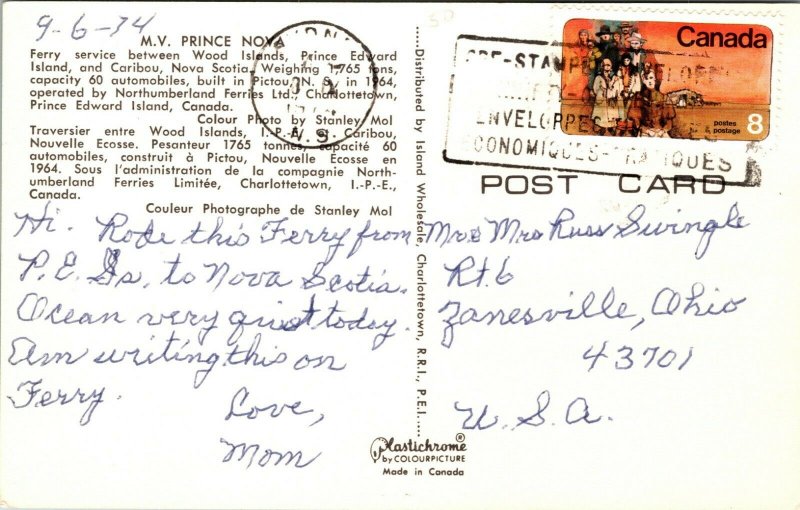 9-6-74
M.V. PRINCE NOVA
Ferry service between Wood Islands, Prince Edward
Island, and Caribou, Nova Scotia. Weighing 1765 tons,
capacity 60 automobiles, built in Pictou, N. S., in 1964,
operated by Northumberland Ferries Ltd., Charlottetown,
Prince Edward Island, Canada.
Colour Photo by Stanley Mol
Traversier entre Wood Islands, I.-P.-E., Caribou,
Nouvelle Ecosse. Pesanteur 1765 tonnes, capacité 60
automobiles, construit à Pictou, Nouvelle Ecosse en
1964. Sous l'administration de la compagnie North-
umberland Ferries Limitée, Charlottetown, I.-P.-E.,
Canada.
Couleur Photographe de Stanley Mol
Hi. Rode this Ferry from
P.E. Is. to Nova Scotia.
Ocean very quiet today.
Am writing this on
Ferry.
Love,
Mom
N.S.
......Distributed by Island Wholesale, Charlottetown, R.R.I., P.E.I.......
Canada
postes
postage
8
PRE-STAMPED ENVELOPES
ENVELOPPES
ECONOMIQUES-PRATIQUES
POST CARD
Mr & Mrs Russ Swingle
Rt. 6
Zanesville, Ohio
43701
U.S.A.
Plastichrome®
by COLOURPICTURE
Made in Canada